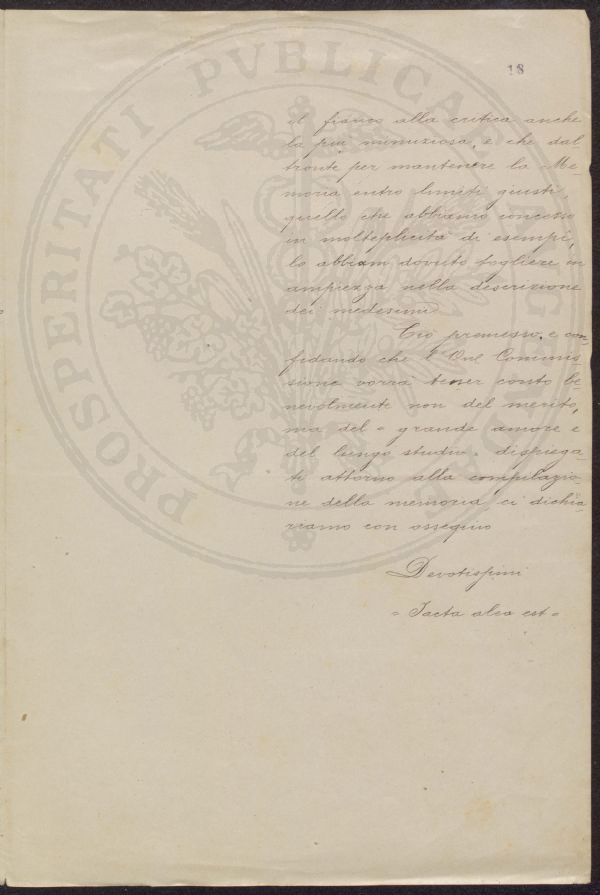 18
il fianco alla critica anche
la più minuziosa, e che dal
fronte per mantenere la Me-
moria entro limiti giusti,
quello che abbiamo concesso
in molteplicità di esempi,
lo abbiam dovuto togliere in
ampiezza nella descrizione
dei medesimi.
Ciò premesso, e con-
fidando che l'Onl Commis-
sione vorrà tener conto be-
nevolmente non del merito,
ma del grande amore e
del lungo studio dispiega-
ti attorno alla compilazio-
ne della memoria ci dichia-
riamo con ossequio
Devotissimi
= Iacta alea est =
PROSPERITATI PVBLICAE